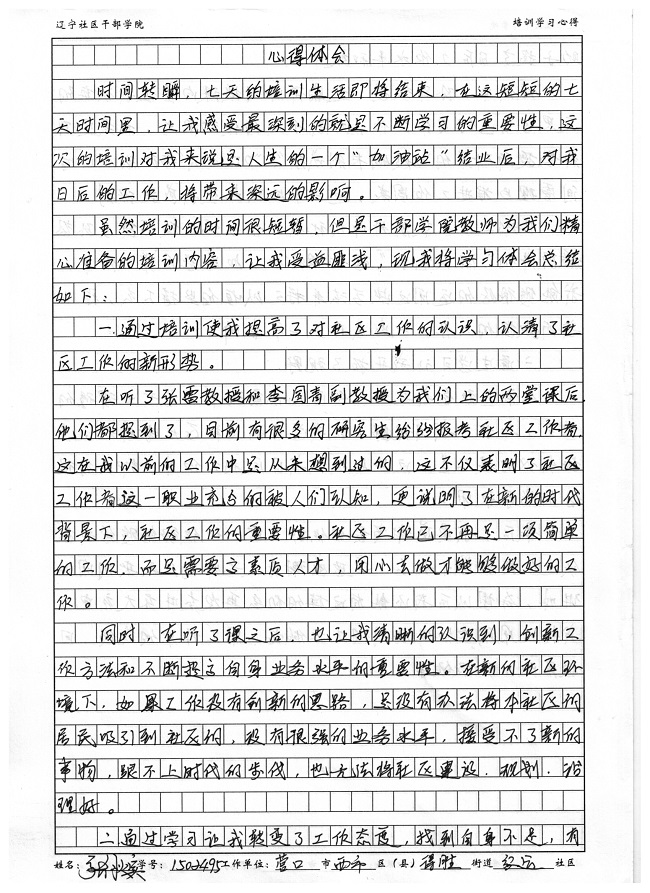 辽宁社区干部学院 培训学习心得
心得体会
时间转瞬，七天的培训生活即将结束，在这短短的七
天时间里，让我感受最深刻的就是不断学习的重要性，这
次的培训对我来说是人生的一个"加油站"结业后，对我
日后的工作，将带来深远的影响。
虽然培训的时间很短暂，但是干部学院教师为我们精
心准备的培训内容，让我受益匪浅，现我将学习体会总结
如下：
一.通过培训使我提高了对社区工作的认识，认清了社
区工作的新形势。
在听了张雷教授和李国青副教授为我们上的两堂课后，
他们都提到了，目前有很多的研究生纷纷报考社区工作者，
这在我以前的工作中是从未想到过的，这不仅表明了社区
工作者这一职业充分的被人们认知，更说明了在新的时代
背景下，社区工作的重要性。社区工作已不再是一项简单
的工作.而是需要高素质人才，用心去做才能够做好的工
作。
同时，在听了课之后，也让我清晰的认识到，创新工
作方法和不断提高自身业务水平的重要性。在新的社区环
境下，如果工作没有创新的思路，是没有办法将本社区的
居民吸引到社区的，没有很强的业务水平，接受不了新的
事物，跟不上时代的步伐，也无法将社区建设.规划.治
理好。
二.通过学习让我转变了工作态度，找到自身不足，有
姓名： 学号：1502495 工作单位：营口 市 西市 区（县）得胜 街道 社区